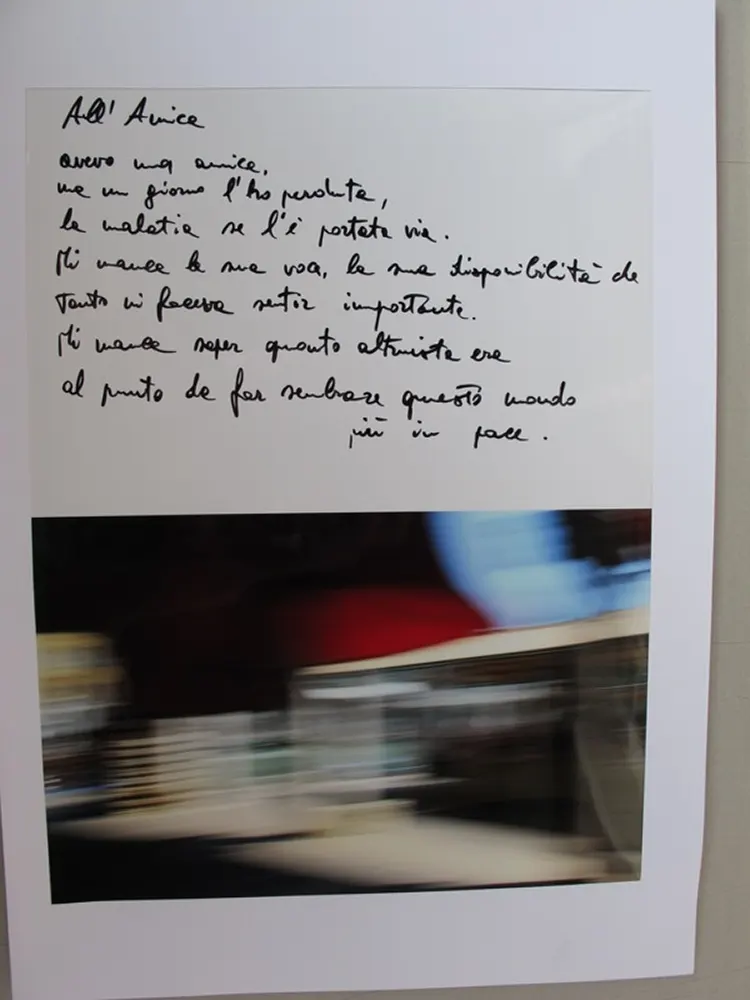 All' Amica
avevo una amica,
ma un giorno l'ho perduta,
la malatia se l'è portata via.
Mi manca la sua voce, la sua disponibilità che
tanto mi faceva sentir importante.
Mi manca saper quanto altruista era
al punto da far sembrare questo mondo
più in pace.